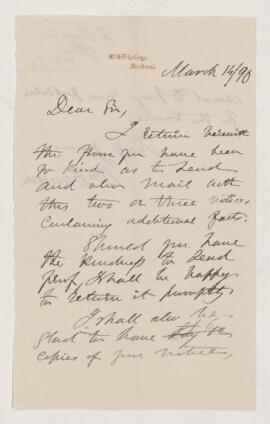 McGill College,
Montreal.
March 14/90
Dear Sir,
I return herewith
the Proof you have been
so kind as to send
and also mail with
this two or three notices
containing additional facts.
Should you have
the kindness to send
proof, I shall be happy
to return it promptly.
I shall also be
glad to have
copies of your notices,